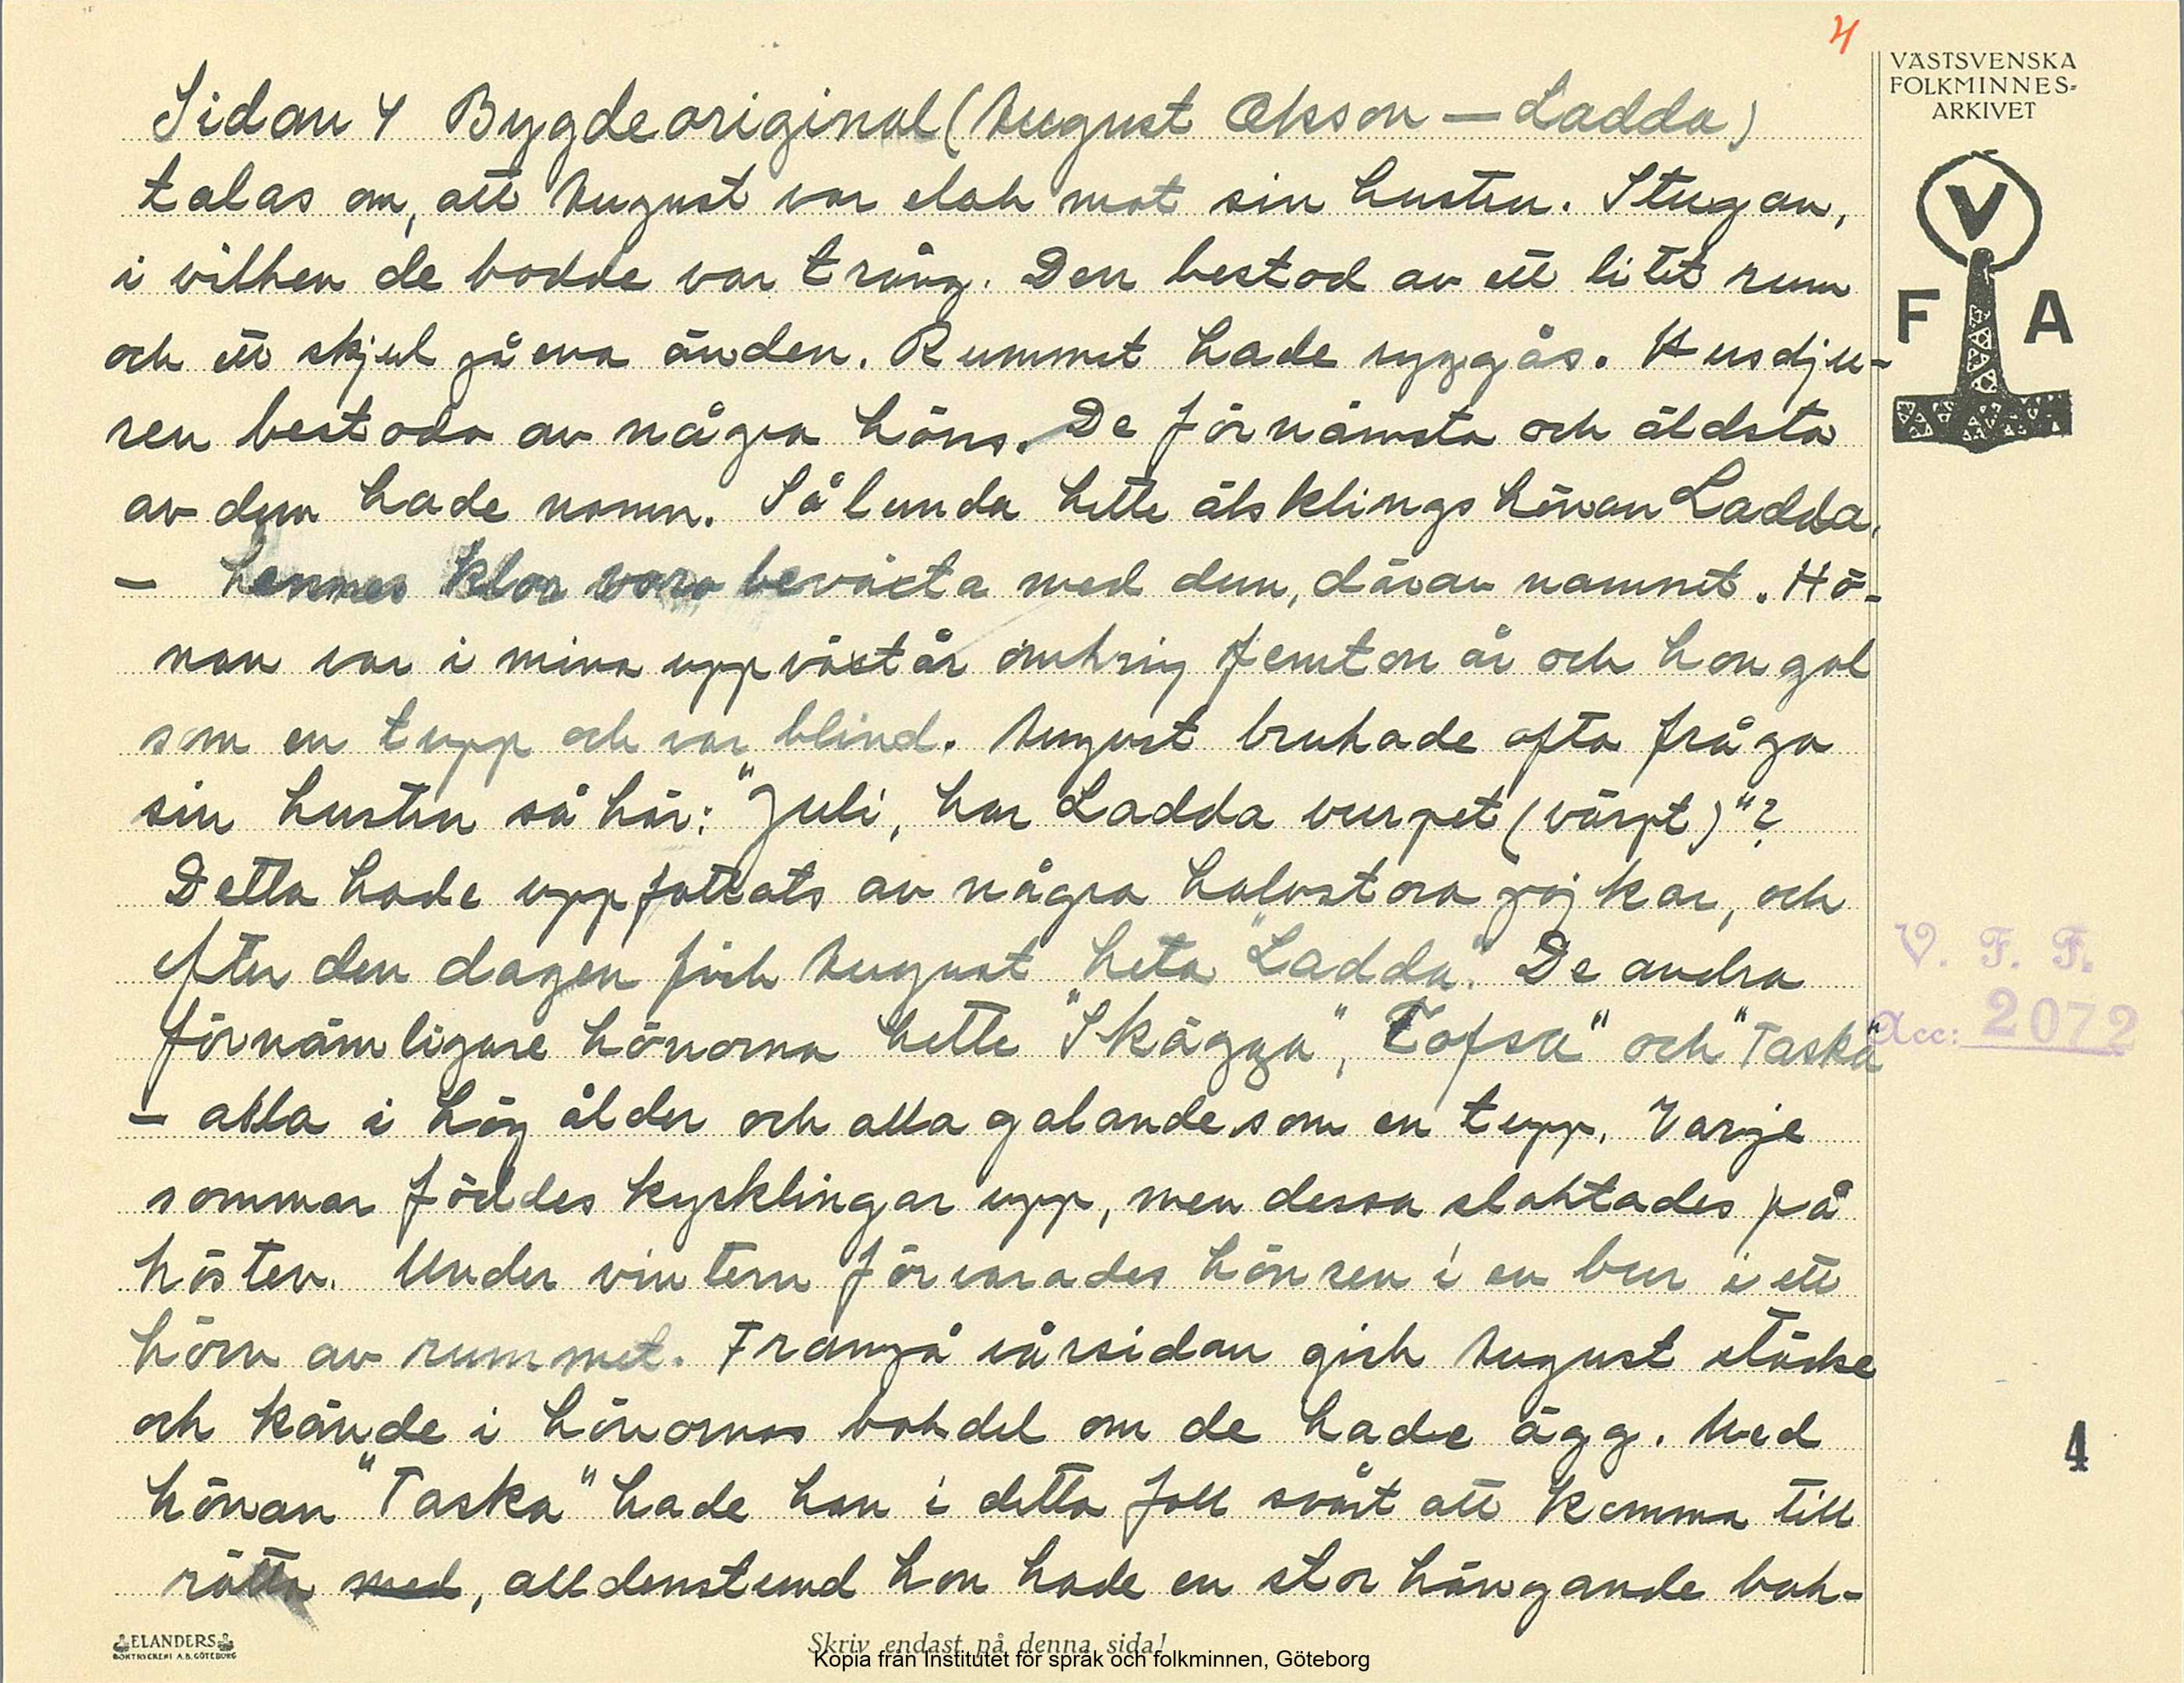 4
VÄSTSVENSKA
FOLKMINNES-
ARKIVET
V
F A
Sidan 4 Bygdeoriginal (August Okson — Ladda)
talas om, att August var elak mot sin hustru. Stugan,
i vilken de bodde var trång. Den bestod av ett litet rum
och ett skjul på ena änden. Rummet hade ryggås. Husdju-
ren bestodo av några höns. De förnämsta och äldsta
av dem hade namn. Sålunda hette älsklingshönan Ladda,
— hennes klor voro beväxta med dun, därav namnet. Hö-
nan var i mina uppväxtår omkring femton år och hon gol
som en tupp och var blind. August brukade ofta fråga
sin hustru så här: "Juli, har Ladda vurpet (värpt)"?
Detta hade uppfattats av några halvstora pojkar, och
efter den dagen fick August heta "Ladda". De andra
förnämligare hönorna hette "Skägga", Tofsa" och "Taska"
— alla i hög ålder och alla galande som en tupp. Varje
sommar föddes kycklingar upp, men dessa slaktades på
hösten. Under vintern förvarades hönsen i en bur i ett
hörn av rummet. Frampå vårsidan gick August
och kände i hönornas bakdel om de hade ägg. Med
hönan "Taska" hade han i detta fall svårt att komma till
rätta med, alldenstund hon hade en stor hängande bak-
V. F. F.
Acc: 2072
4
ELANDERS
BOKTRYCKERI A.B. GÖTEBORG
Skriv endast på denna sida!
Kopia från Institutet för språk och folkminnen, Göteborg